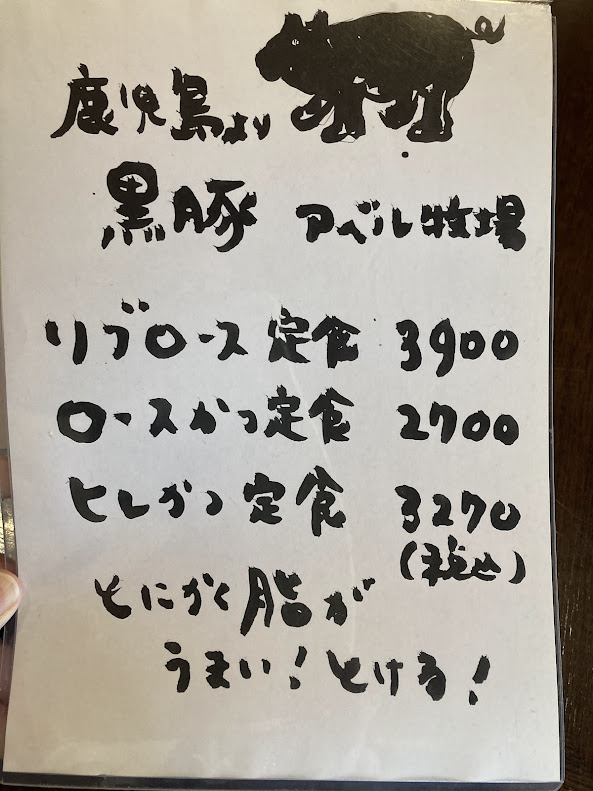 鹿児島より
黒豚 アベル牧場
リブロース定食 3900
ロースかつ定食 2700
ヒレかつ定食 3270
(税込)
とにかく脂が
うまい!とける!